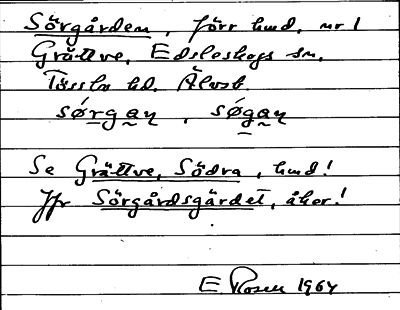 Sörgården, förr hmd. nr 1
Gråttve, Edsleskogs sn.
Tössbo hd. Älvsb.
sørgaņ, søgaņ
Se Gråttve, Södra, hmd!
Jfr Sörgårdsgärdet, åker!
E Rosell 1964